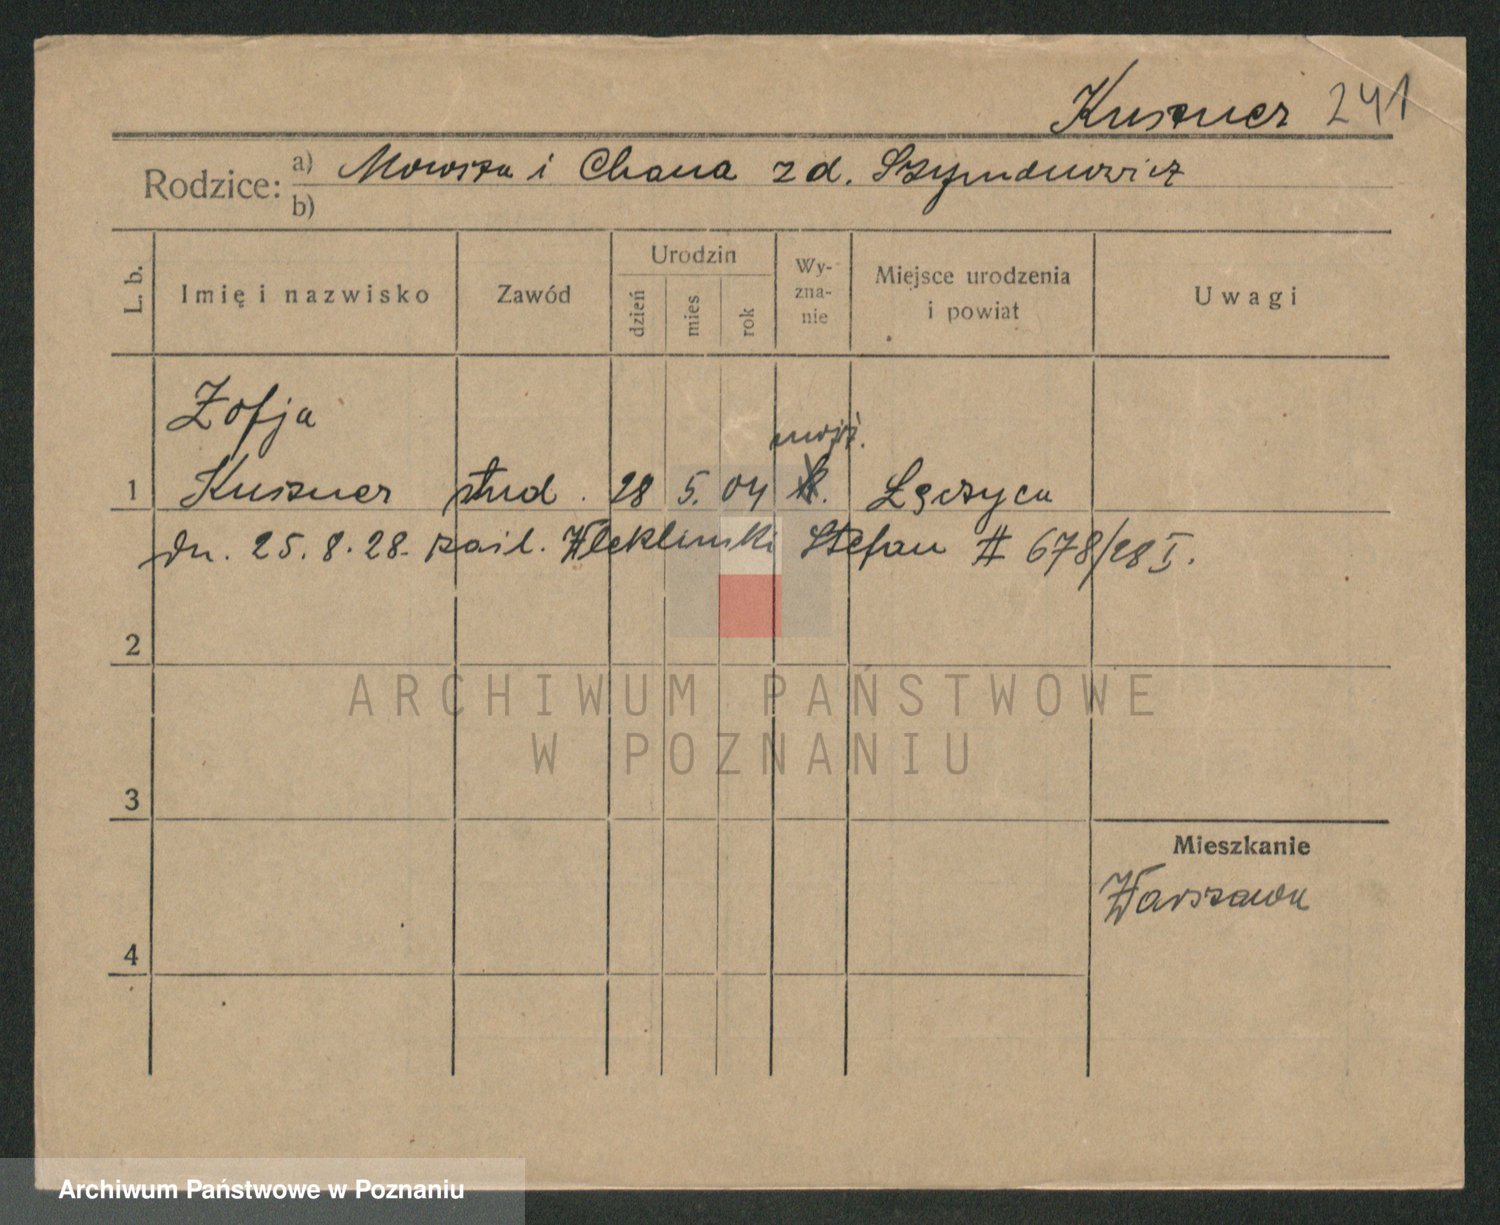 Kuszner 241
Rodzice: a) Mowsza i Chana z d. Szymdnowicz
b)
L. b. Imię i nazwisko Zawód Urodzin dzień mies rok Wyznanie Miejsce urodzenia i powiat Uwagi
Zofja
mojż.
1 Kuszner stud. 28 5. 04 k. Łęczyca
dn. 25. 8. 28. zaśl. Weklinski Stefan # 678/28 I.
2
ARCHIWUM PAŃSTWOWE
W POZNANIU
3
Mieszkanie
Warszawa
4
Archiwum Państwowe w Poznaniu